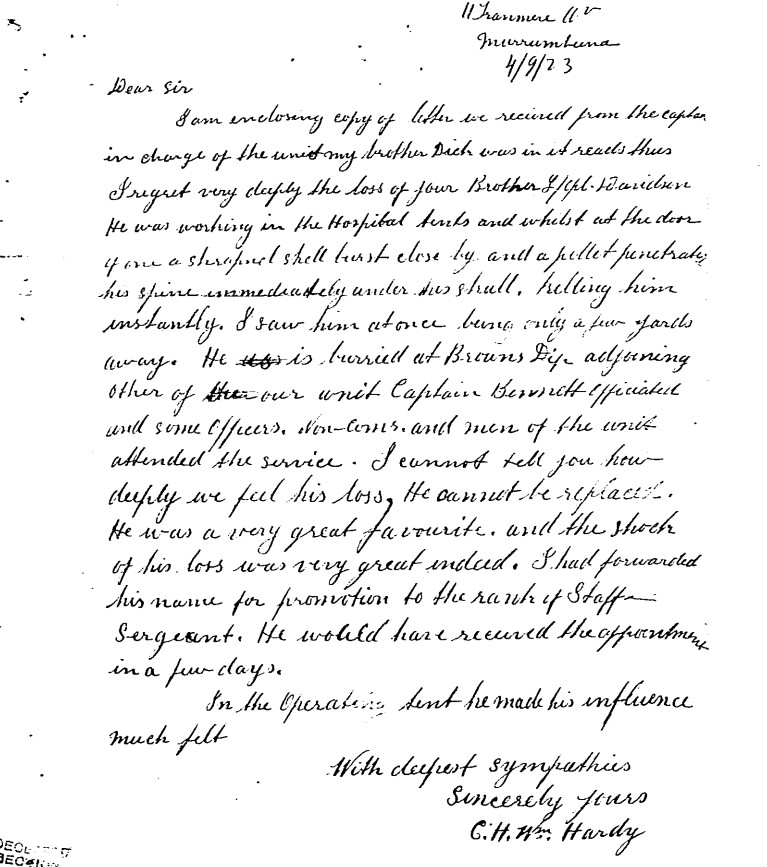 11 Tranmere Av
Murrumbeena
4/9/23
Dear Sir
I am enclosing copy of letter we received from the captain
in charge of the unit my brother Dick was in it reads thus
I regret very deeply the loss of your Brother L/Cpl. Davidson
He was working in the Hospital tents and whilst at the door
of one a shrapnel shell burst close by and a pellet penetrated
his spine immediately under his skull, killing him
instantly. I saw him at once being only a few yards
away. He was is burried at Browns Dip adjoining
other of the our unit Captain Bennett Officiated
and some Officers. Non-Coms. and men of the unit
attended the service. I cannot tell you how
deeply we feel his loss, He cannot be replaced.
He was a very great favourite. and the shock
of his loss was very great indeed. I had forwarded
his name for promotion to the rank of Staff
Sergeant. He would have received the appointment
in a few days.
In the Operating tent he made his influence
much felt
With deepest sympathies
Sincerely yours
C.H.Wm. Hardy